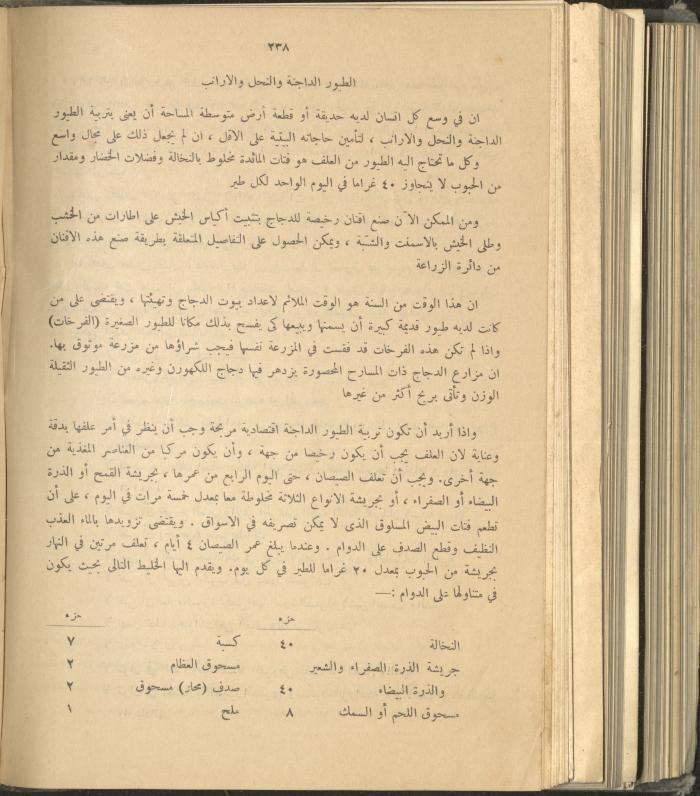 ٢٣٨
الطيور الداجنة والنحل والارانب
ان في وسع كل انسان لديه حديقة أو قطعة أرض متوسطة المساحة أن يعنى بتربية الطيور
الداجنة والنحل والارانب ، لتأمين حاجاته البيتية على الاقل ، ان لم يجعل ذلك على مجال واسع
وكل ما تحتاج اليه الطيور من العلف هو فتات المائدة مخلوط بالنخالة وفضلات الخضار ومقدار
من الحبوب لا يتجاوز ٤٠ غراما في اليوم الواحد لكل طير
ومن الممكن الآن صنع اقنان رخيصة للدجاج بتثبيت أكياس الخيش على اطارات من الخشب
وطلى الخيش بالاسمنت والشبّة ، ويمكن الحصول على التفاصيل المتعلقة بطريقة صنع هذه الاقنان
من دائرة الزراعة
ان هذا الوقت من السنة هو الوقت الملائم لاعداد بيوت الدجاج وتهيئتها ، ويقتضى على من
كانت لديه طيور قديمة كبيرة أن يسمنها ويبيعها كى يفسح بذلك مكانا للطيور الصغيرة (الفرخات)
واذا لم تكن هذه الفرخات قد فقست في المزرعة نفسها فيجب شراؤها من مزرعة موثوق بها.
ان مزارع الدجاج ذات المسارح المحصورة يزدهر فيها دجاج اللكهورن وغيره من الطيور الثقيلة
الوزن وتأتى بربح أكثر من غيرها
واذا أريد أن تكون تربية الطيور الداجنة اقتصادية مربحة وجب أن ينظر في أمر علفها بدقة
وعناية لان العلف يجب أن يكون رخيصا من جهة ، وأن يكون مركبا من العناصر المغذية من
جهة أخرى. ويجب أن تعلف الصيصان ، حتى اليوم الرابع من عمرها ، بجريشة القمح أو الذرة
البيضاء أو الصفراء ، أو بجريشة الانواع الثلاثة مخلوطة معا بمعدل خمسة مرات في اليوم ، على أن
تطعم فتات البيض المسلوق الذى لا يمكن تصريفه في الاسواق . ويقتضى تزويدها بالماء العذب
النظيف وقطع الصدف على الدوام . وعندما يبلغ عمر الصيصان ٤ أيام ، تعلف مرتين في النهار
بجريشة من الحبوب بمعدل ٢٠ غراما للطير في كل يوم. ويقدم اليها الخليط التالى بحيث يكون
في متناولها على الدوام :—
جزء جزء
النخالة ٤٠ كسبة ٧
جريشة الذرة الصفراء والشعير مسحوق العظام ٢
والذرة البيضاء ٤٠ صدف (محار) مسحوق ٢
مسحوق اللحم أو السمك ٨ ملح ١